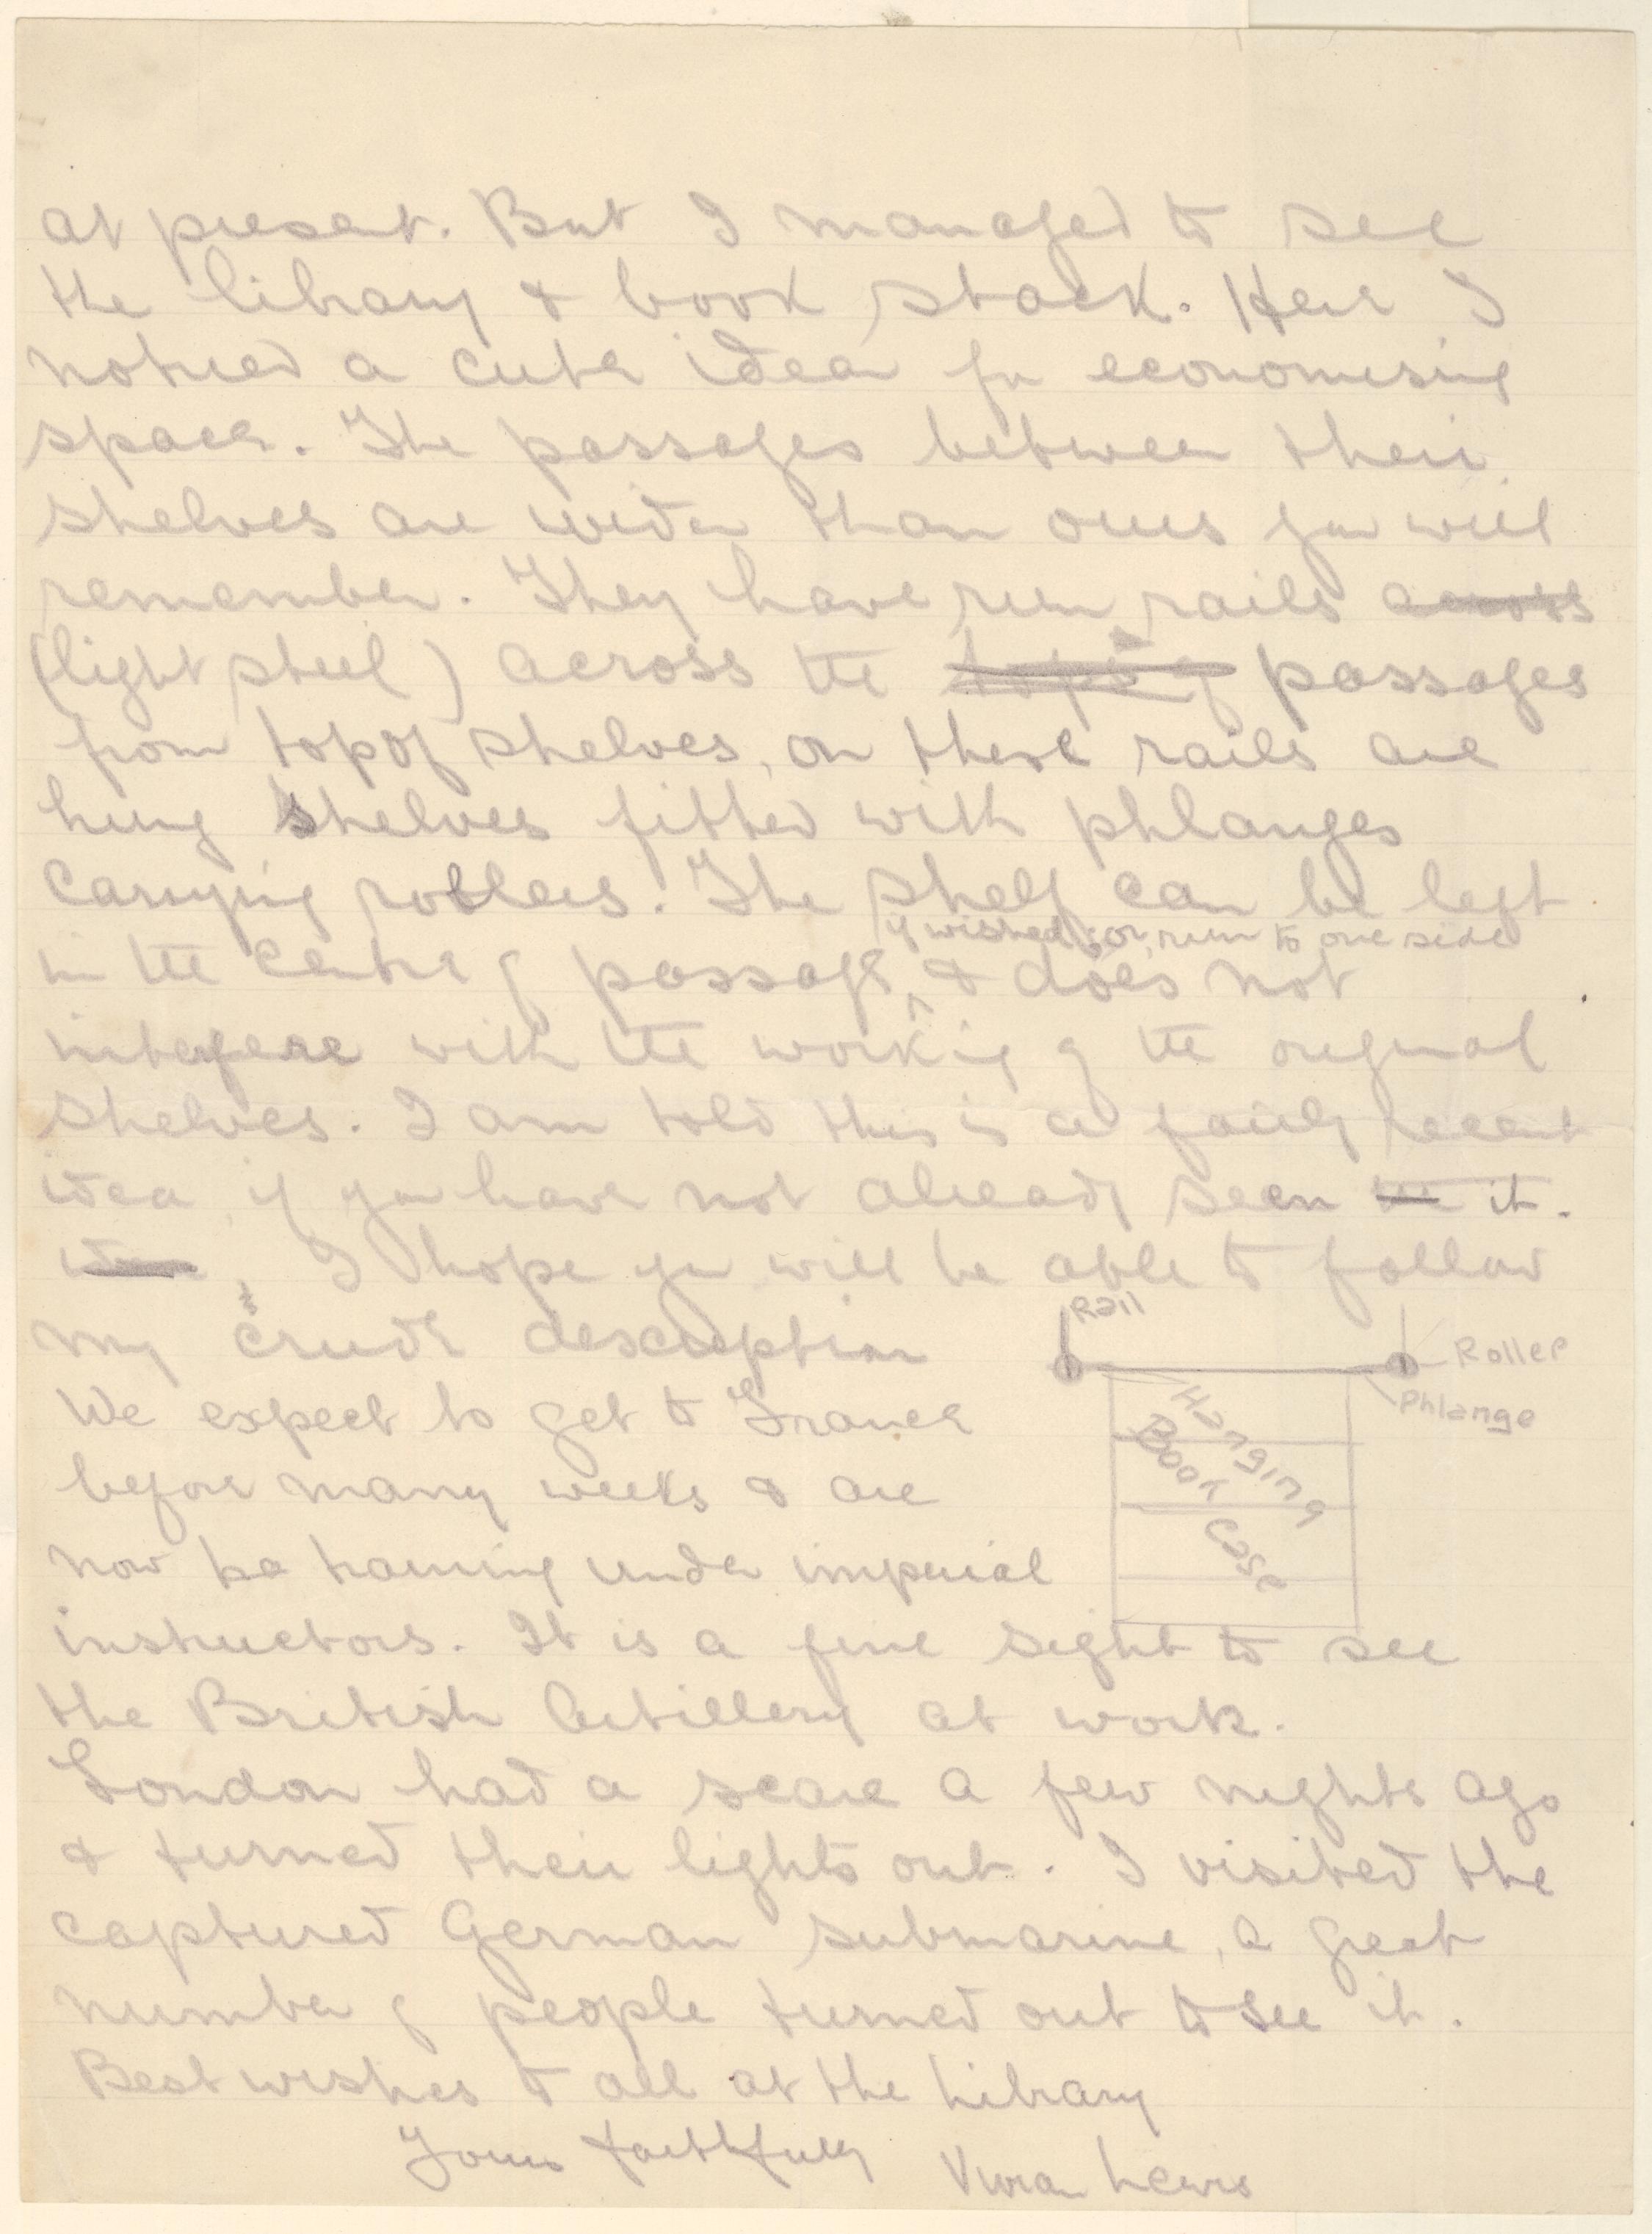 at present. But I managed to see
the library & book stack. Here I
noticed a cute idea for economising
space. The passages between their
shelves are wider than ours you will
remember. They have run rails across
(light steel) across the tops of passages
from top of shelves, on these rails are
hung shelves fitted with phlanges
carrying rollers. The shelf can be left
if wished, or run to one side
in the centre of passage, & does not
interfere with the working of the original
shelves. I am told this is a fairly recent
idea, if you have not already seen the it.
idea, I hope you will be able to follow
my crude description
Rail
Roller
Phlange
Hanging
Book
Case
We expect to get to France
before many weeks & are
now training under imperial
instructors. It is a fine sight to see
the British Artillery at work.
London had a scare a few nights ago
& turned their lights out. I visited the
captured German submarine, a great
number of people turned out to see it.
Best wishes to all at the Library
Yours faithfully Vivian Lewis